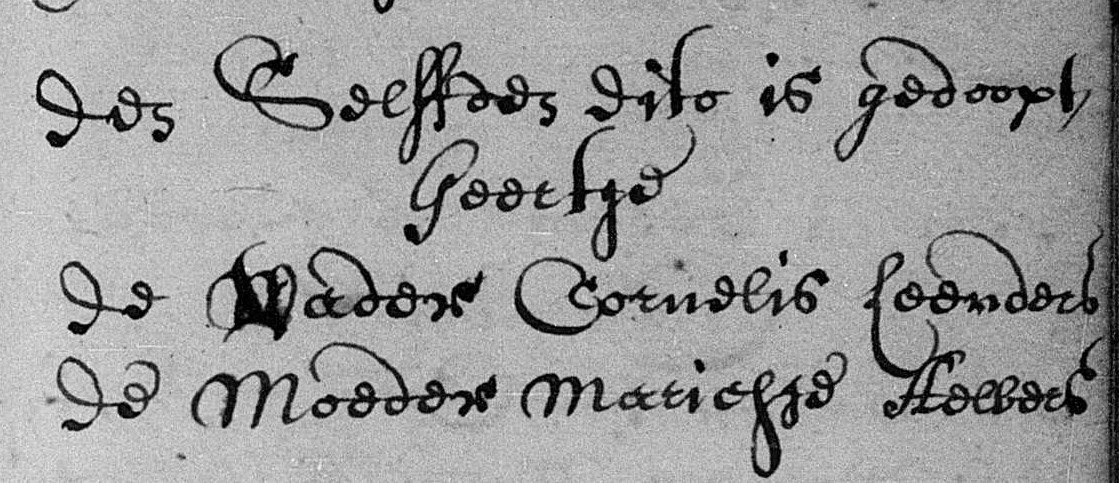 den Selffden dito is gedoopt,
Geertge
de Vader Cornelis Leenders
de Moeder Marichge